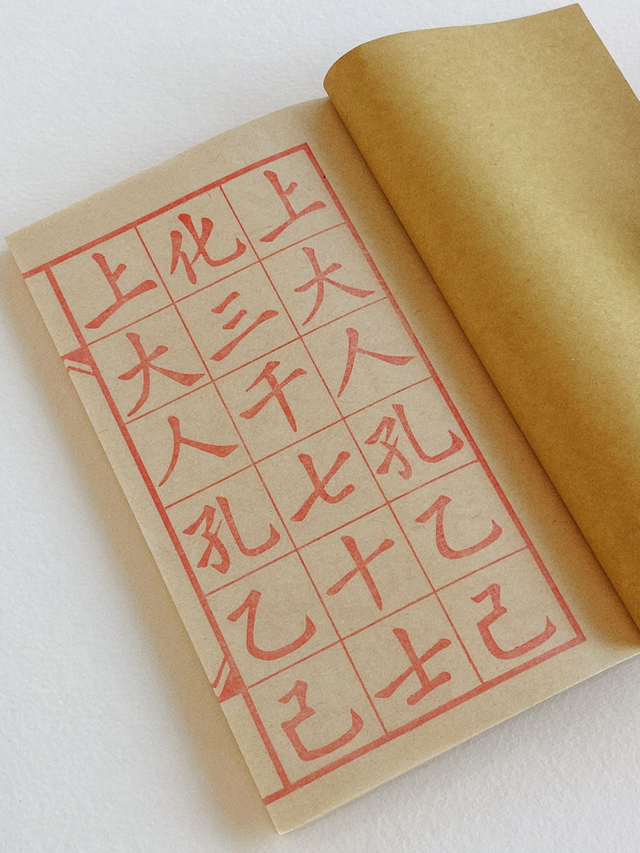 上大人孔乙己
化三千七十士
上大人孔乙己